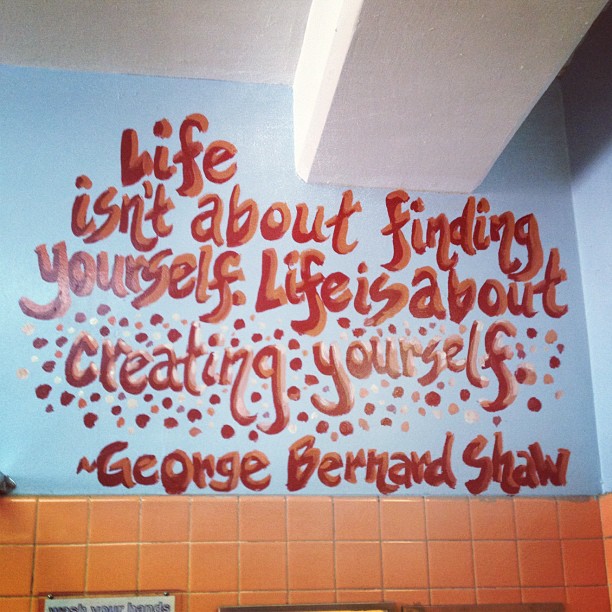 Life
isn't about finding
yourself. Life is about
creating yourself.
~George Bernard Shaw
wash your hands